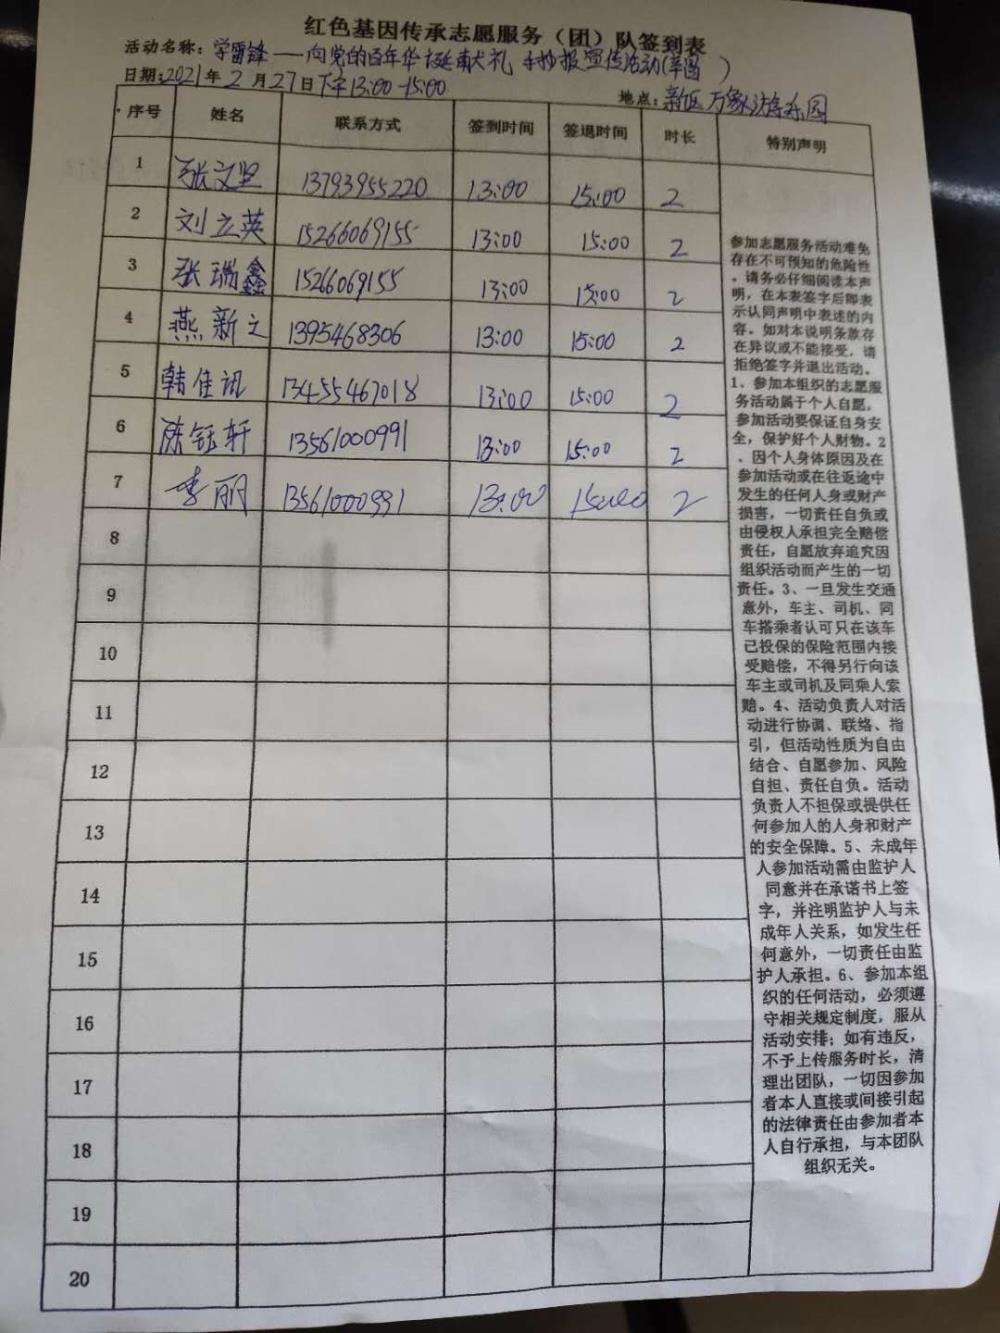 红色基因传承志愿服务（团）队签到表
活动名称：学雷锋——向党的百年华诞献礼 手抄报宣传活动(莘园 )
日期:2021年2月27日下午13:00-15:00
地点:新区万象游乐园
序号 姓名 联系方式 签到时间 签退时间 时长 特别声明
1 张文坚 13793955220 13:00 15:00 2
2 刘立英 15266069155 13:00 15:00 2
3 张瑞鑫 15266069155 13:00 15:00 2
4 燕新之 1395468306 13:00 15:00 2
5 韩佳讯 13455467018 13:00 15:00 2
6 陈钰轩 13561000991 13:00 15:00 2
7 李丽 13561000991 13:00 15:00 2
8
9
10
11
12
13
14
15
16
17
18
19
20
参加志愿服务活动难免
存在不可预知的危险性
，请务必仔细阅读本声
明，在本表签字后即表
示认同声明中表述的内
容。如对本说明条款存
在异议或不能接受，请
拒绝签字并退出活动。
1、参加本组织的志愿服
务活动属于个人自愿，
参加活动要保证自身安
全，保护好个人财物。2
、因个人身体原因及在
参加活动或在往返途中
发生的任何人身或财产
损害，一切责任自负或
由侵权人承担完全赔偿
责任，自愿放弃追究因
组织活动而产生的一切
责任。3、一旦发生交通
意外，车主、司机、同
车搭乘者认可只在该车
已投保的保险范围内接
受赔偿，不得另行向该
车主或司机及同乘人索
赔。4、活动负责人对活
动进行协调、联络、指
引，但活动性质为自由
结合、自愿参加、风险
自担、责任自负。活动
负责人不担保或提供任
何参加人的人身和财产
的安全保障。5、未成年
人参加活动需由监护人
同意并在承诺书上签
字，并注明监护人与未
成年人关系，如发生任
何意外，一切责任由监
护人承担。6、参加本组
织的任何活动，必须遵
守相关规定制度，服从
活动安排；如有违反，
不予上传服务时长，清
理出团队，一切因参加
者本人直接或间接引起
的法律责任由参加者本
人自行承担，与本团队
组织无关。